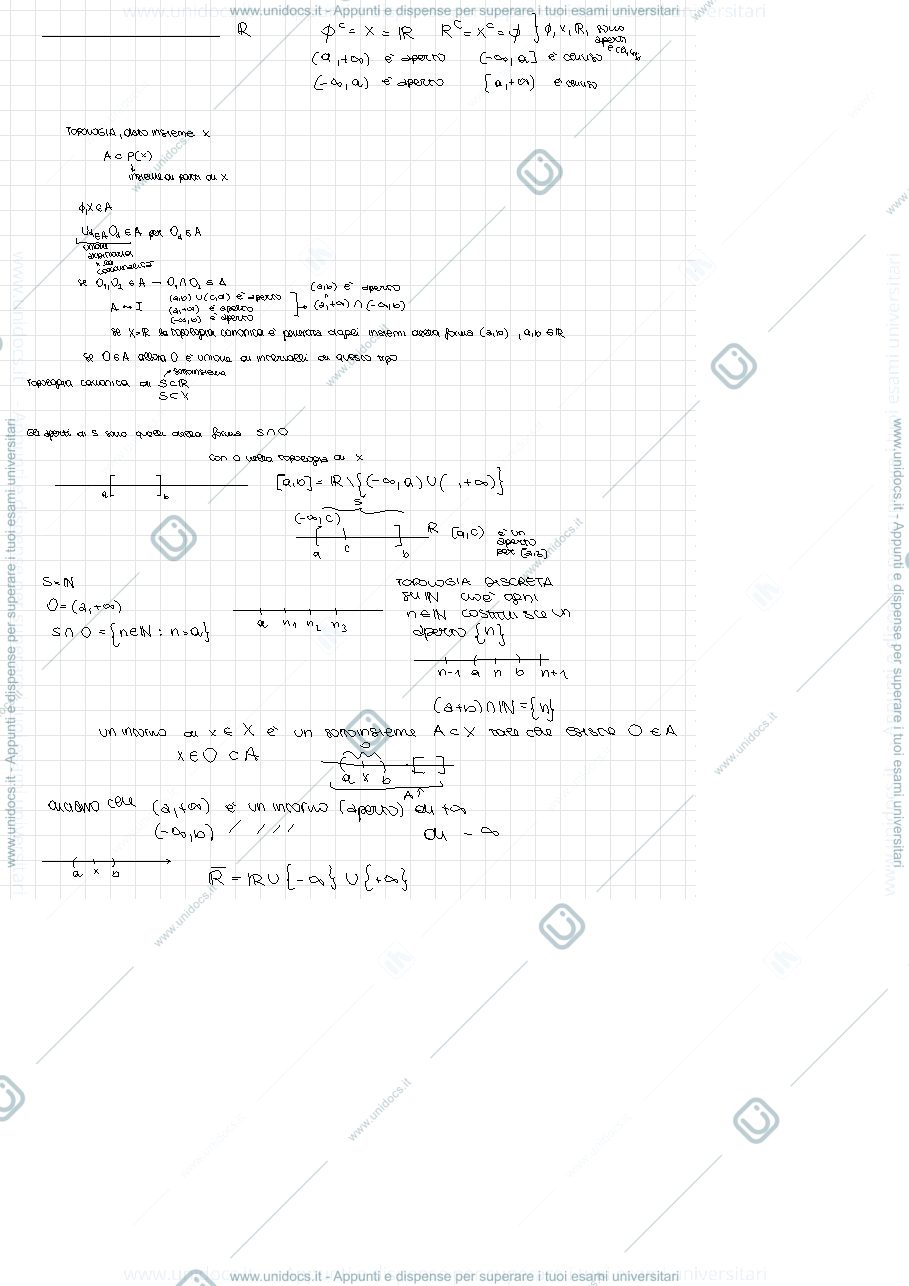 www.unidocs.it - Appunti e dispense per superare i tuoi esami universitari
ℝ
φᶜ = X = ℝ ℝᶜ = Xᶜ = φ } φ, X, ℝ, sono aperti e chiusi
(a,+∞) è aperto (-∞,a] è chiuso
(-∞,a) è aperto [a,+∞) è chiuso
TOPOLOGIA, dato insieme X
A ⊂ P(X)
↓
insieme di parti di X
φ, X ∈ A
∪α∈A Oα ∈ A per Oα ∈ A
unione
arbitraria
x la
cardinalità
se O₁,O₂ ∈ A → O₁∩O₂ ∈ A
A ↔ I
(a,b) ∪ (c,d) è aperto
(a,+∞) è aperto
(-∞,b) è aperto
(a,b) è aperto
"
(a,+∞) ∩ (-∞,b)
se X=ℝ la topologia canonica è generata dagli insiemi della forma (a,b), a,b ∈ ℝ
se O∈A allora O è unione di intervalli di questo tipo
↗ sottoinsieme
Topologia canonica di S⊂ℝ
S⊂X
Gli aperti di S sono quelli della forma S∩O
con O nella topologia di X
a b
[a,b] = ℝ \ {(-∞,a) ∪ ( ,+∞)}
S
(-∞,c)
a c b
ℝ
[a,c) è un aperto per [a,b]
S=ℕ
O=(a,+∞)
S∩O = {n∈ℕ : n>a}
a n₁ n₂ n₃
TOPOLOGIA DISCRETA
su ℕ cioè ogni
n∈ℕ costituisce un
aperto {n}
n-1 a n b n+1
(a+b)∩ℕ={n}
un intorno di x ∈ X è un sottoinsieme A⊂X tale che esiste O∈A
x∈O⊂A
O
a x b
A↑
diciamo che (a,+∞) è un intorno (aperto) di +∞
(-∞,b) / / / / di -∞
a x b
ℝ̅ = ℝ∪{-∞}∪{+∞}
www.unidocs.it - Appunti e dispense per superare i tuoi esami universitari